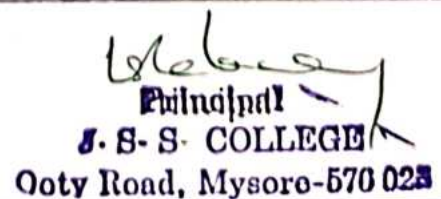 Principal
J. S. S. COLLEGE
Ooty Road, Mysore-570 025